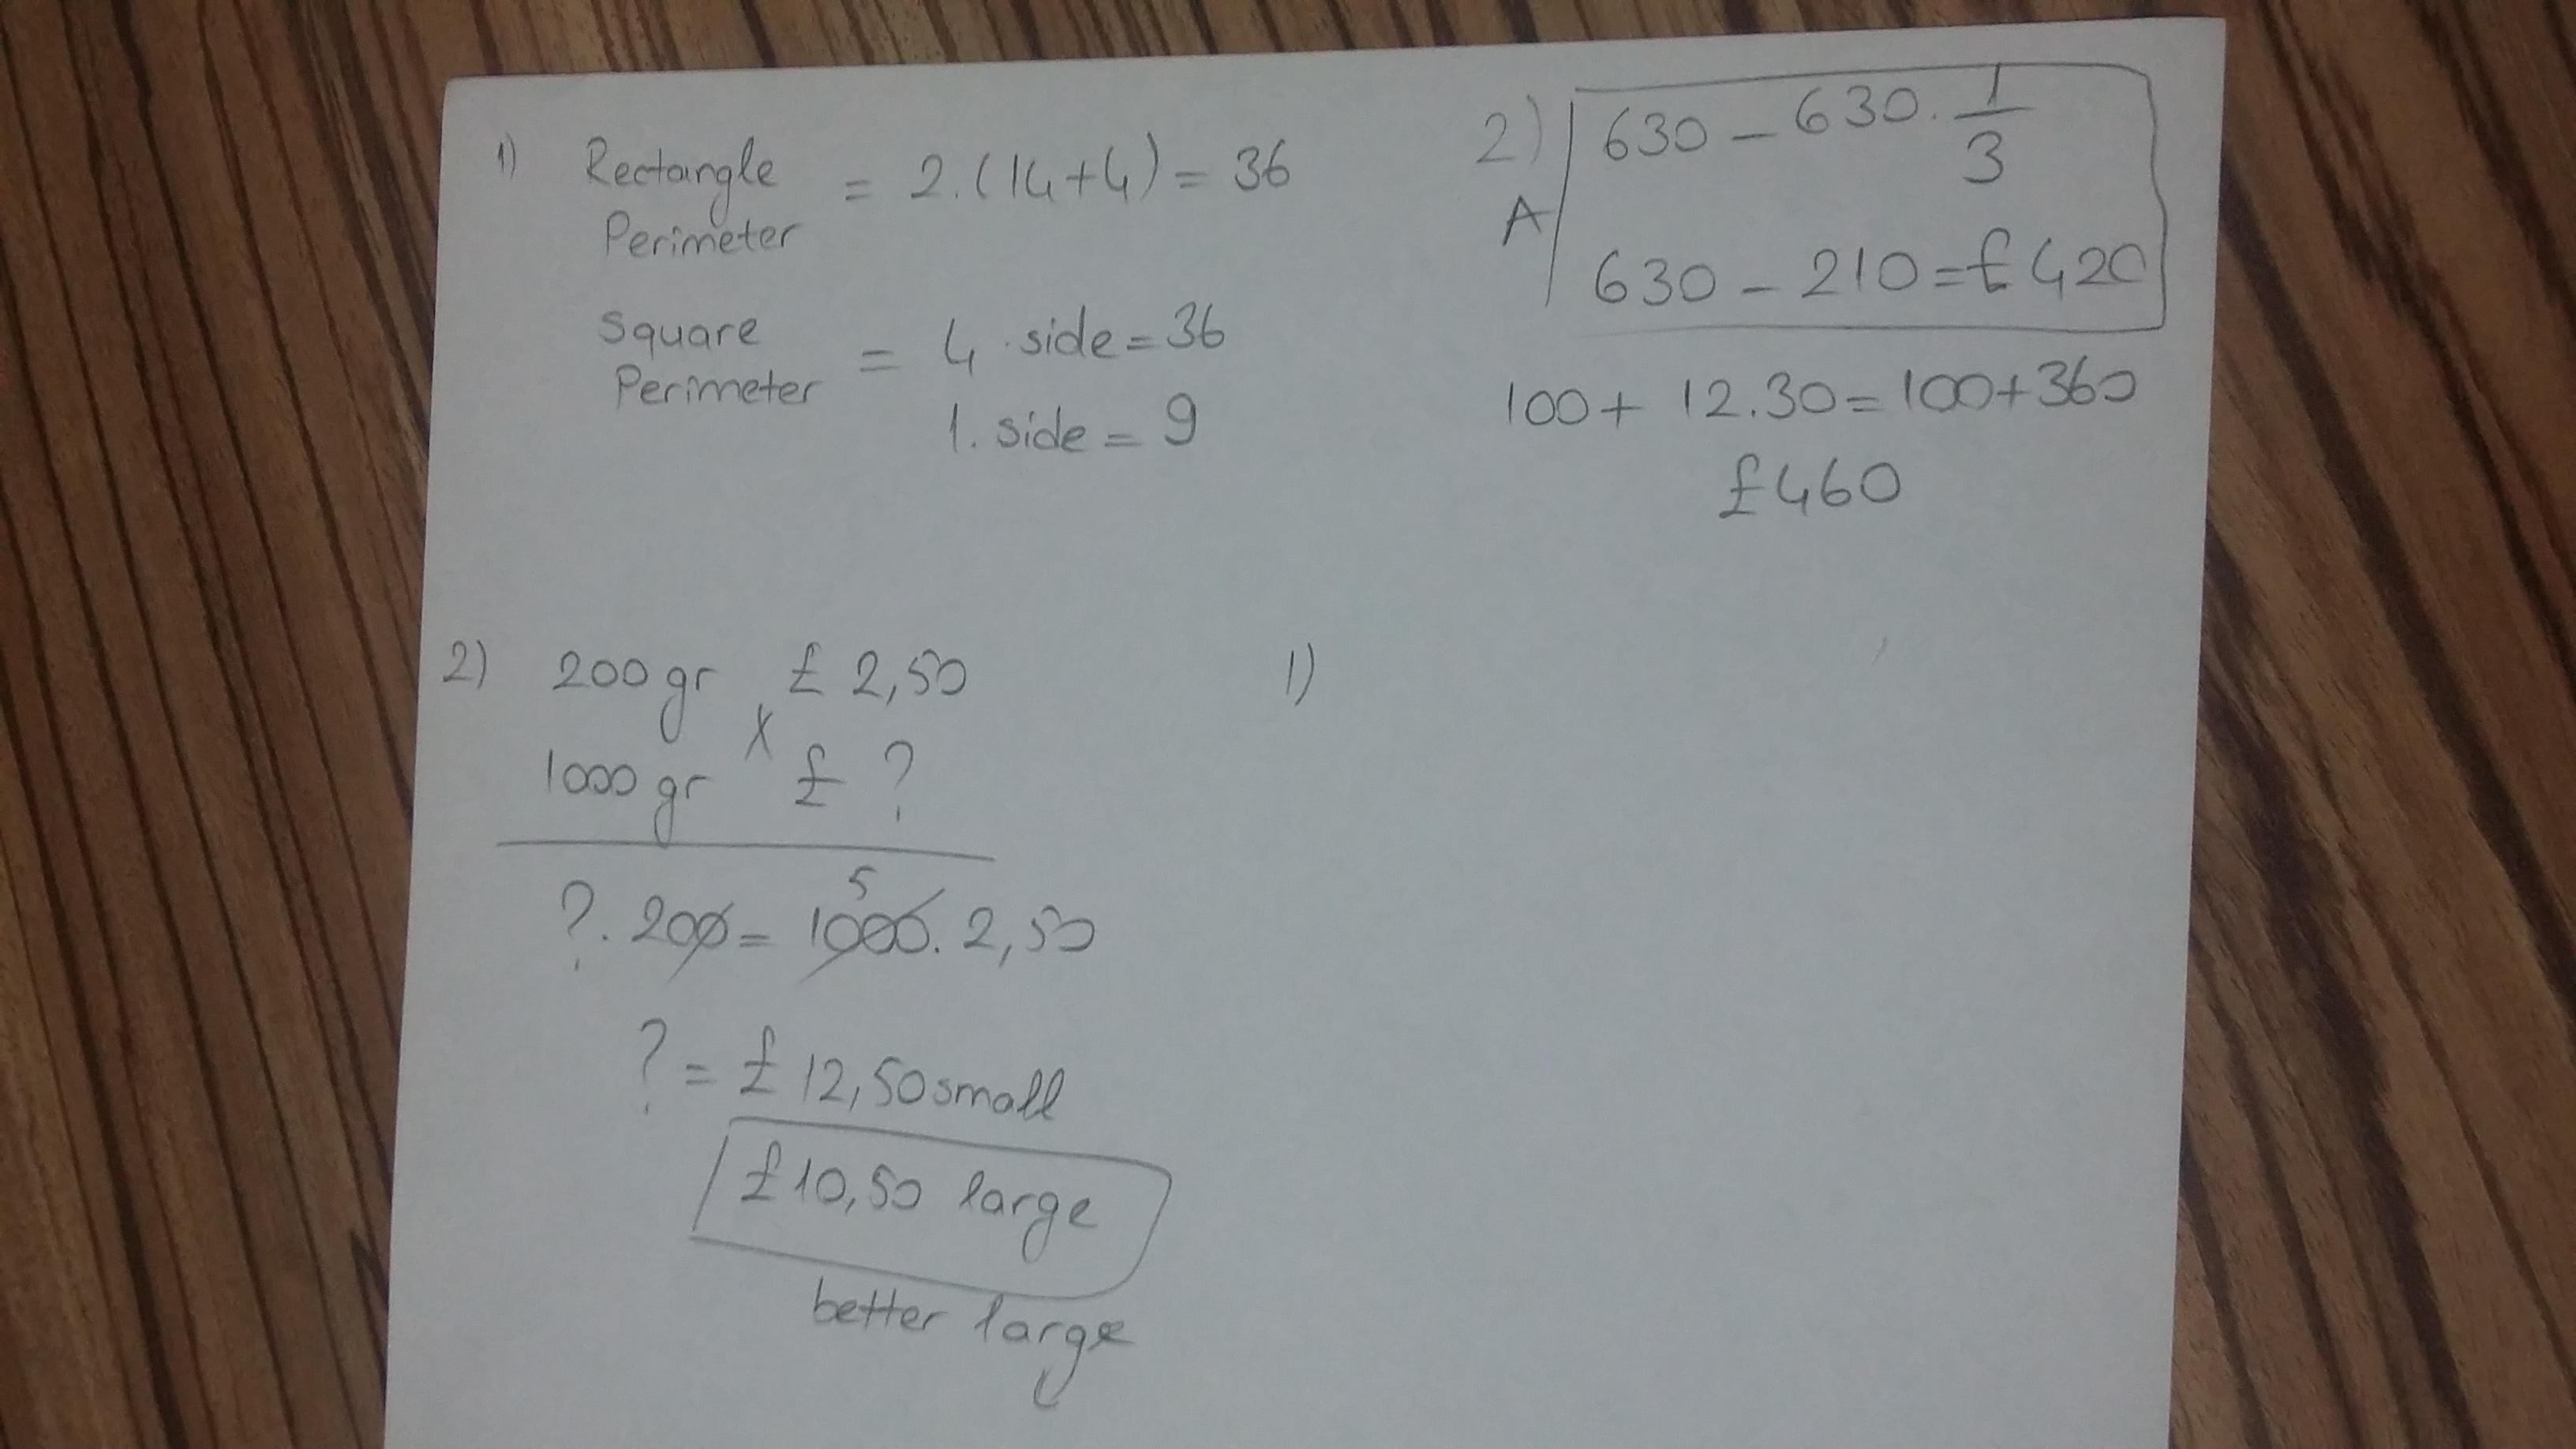 1) Rectangle Perimeter = 2.(14+4) = 36
Square Perimeter = 4 . side = 36
1. side = 9
2) 630 - 630 . 1/3
A
630 - 210 = £ 420
100 + 12.30 = 100 + 360
£460
2) 200 gr £ 2,50
X
1000 gr £ ?
5
? . 200 = 1000 . 2,50
? = £ 12,50 small
£10,50 large
better large
1)